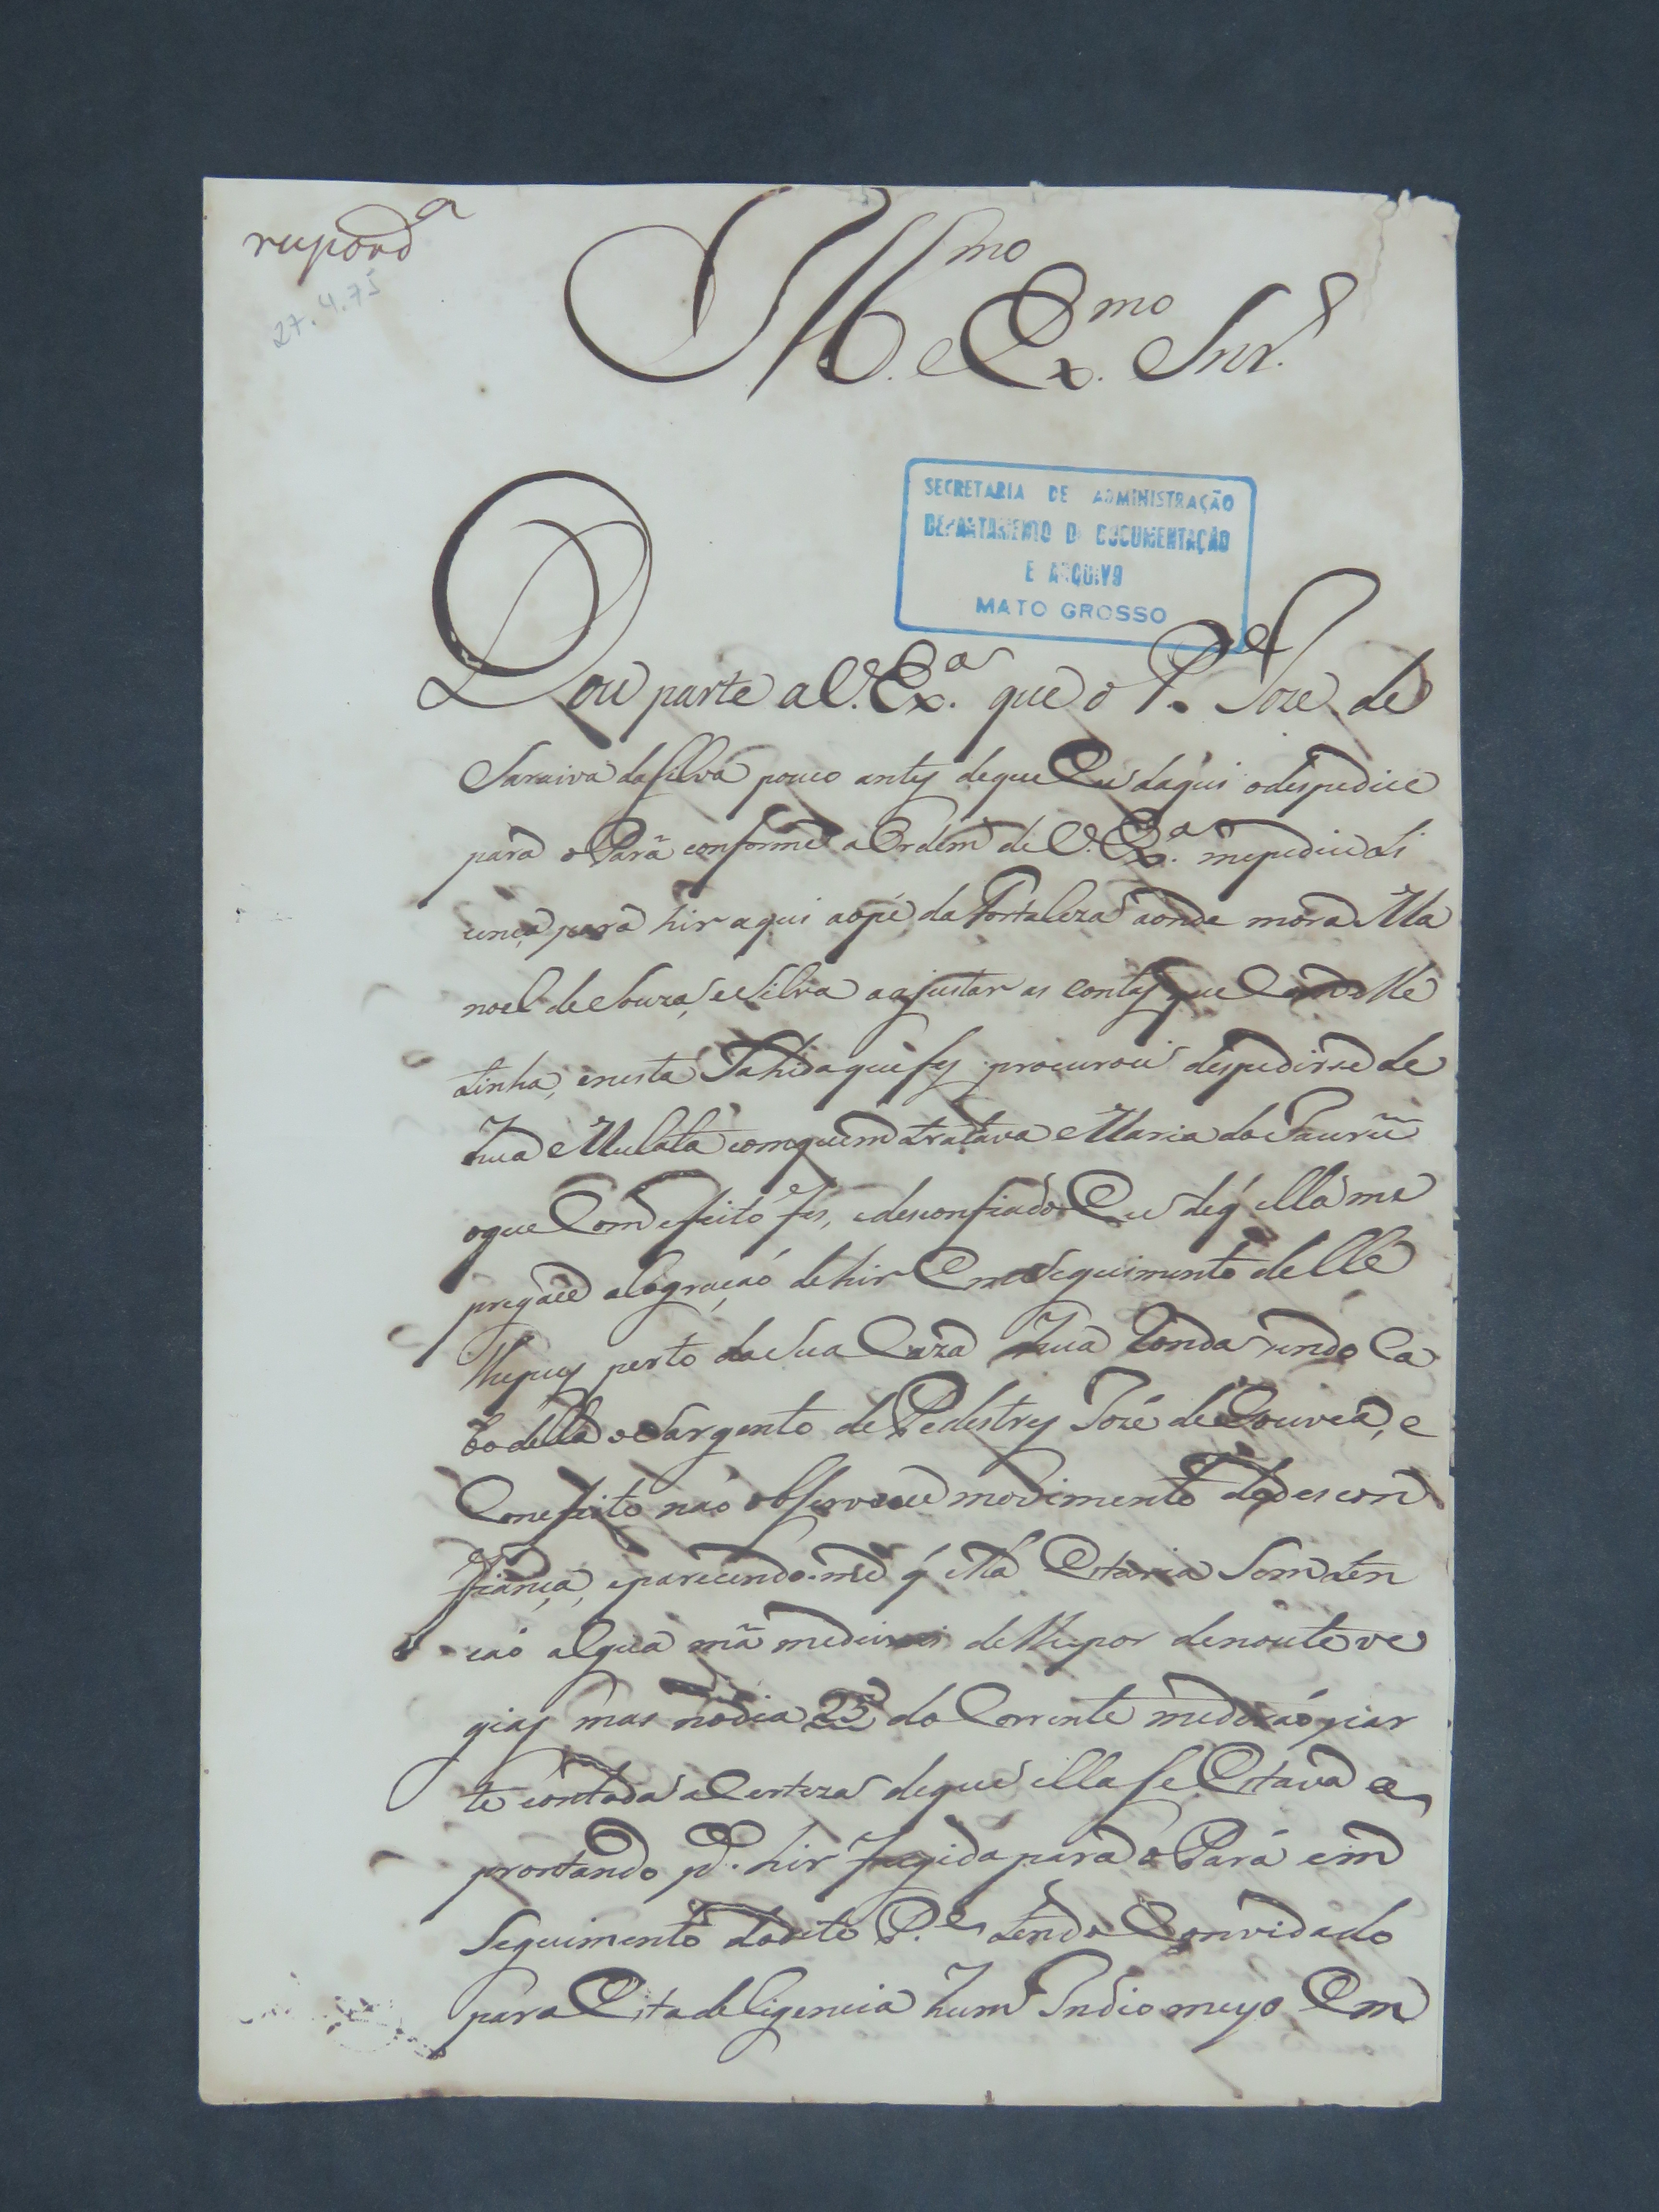 respond.a
27.4.75
Ill.mo e Ex.mo Snr.
SECRETARIA DE ADMINISTRAÇÃO
DEPARTAMENTO DE DOCUMENTAÇÃO
E ARQUIVO
MATO GROSSO
Dou parte a V. Ex.a que o P.e Joze de
Saraiva da Silva pouco antes deque Eu daqui odespedice
para o Pará conforme a Ordem de V. Ex.a mepedio Li
cença para hir aqui aopé da Fortaleza aonde mora Ma
noel de Souza, e Silva aajustar as contas que Com elle
tinha, enesta Sahida que fes procurou despedirse de
hua Mulata comquem tratava Maria do
oque Com efeito fes, edesconfiado Eu deq' ella me
pregáce alograçaó dehir Em Seguimento delle
lhepus perto da Sua Caza hua Ronda sendo Ca
bo della o Sargento de Pedestres Jozé de Gouvea, e
Comefeito naó observou movimento de descon
fiança, eparecendo-me q' ella Estaria Sem ten
caó algua má medeixei de lhepor denoute ve
gias mas nodia 25 do Corrente mederaó par
te contoda a Certeza deque ella se Estava a
prontando p.a hir fugida para o Pará em
Seguimento dodito P.e tendo Convidado
para Esta deligencia hum Indio meyo Em